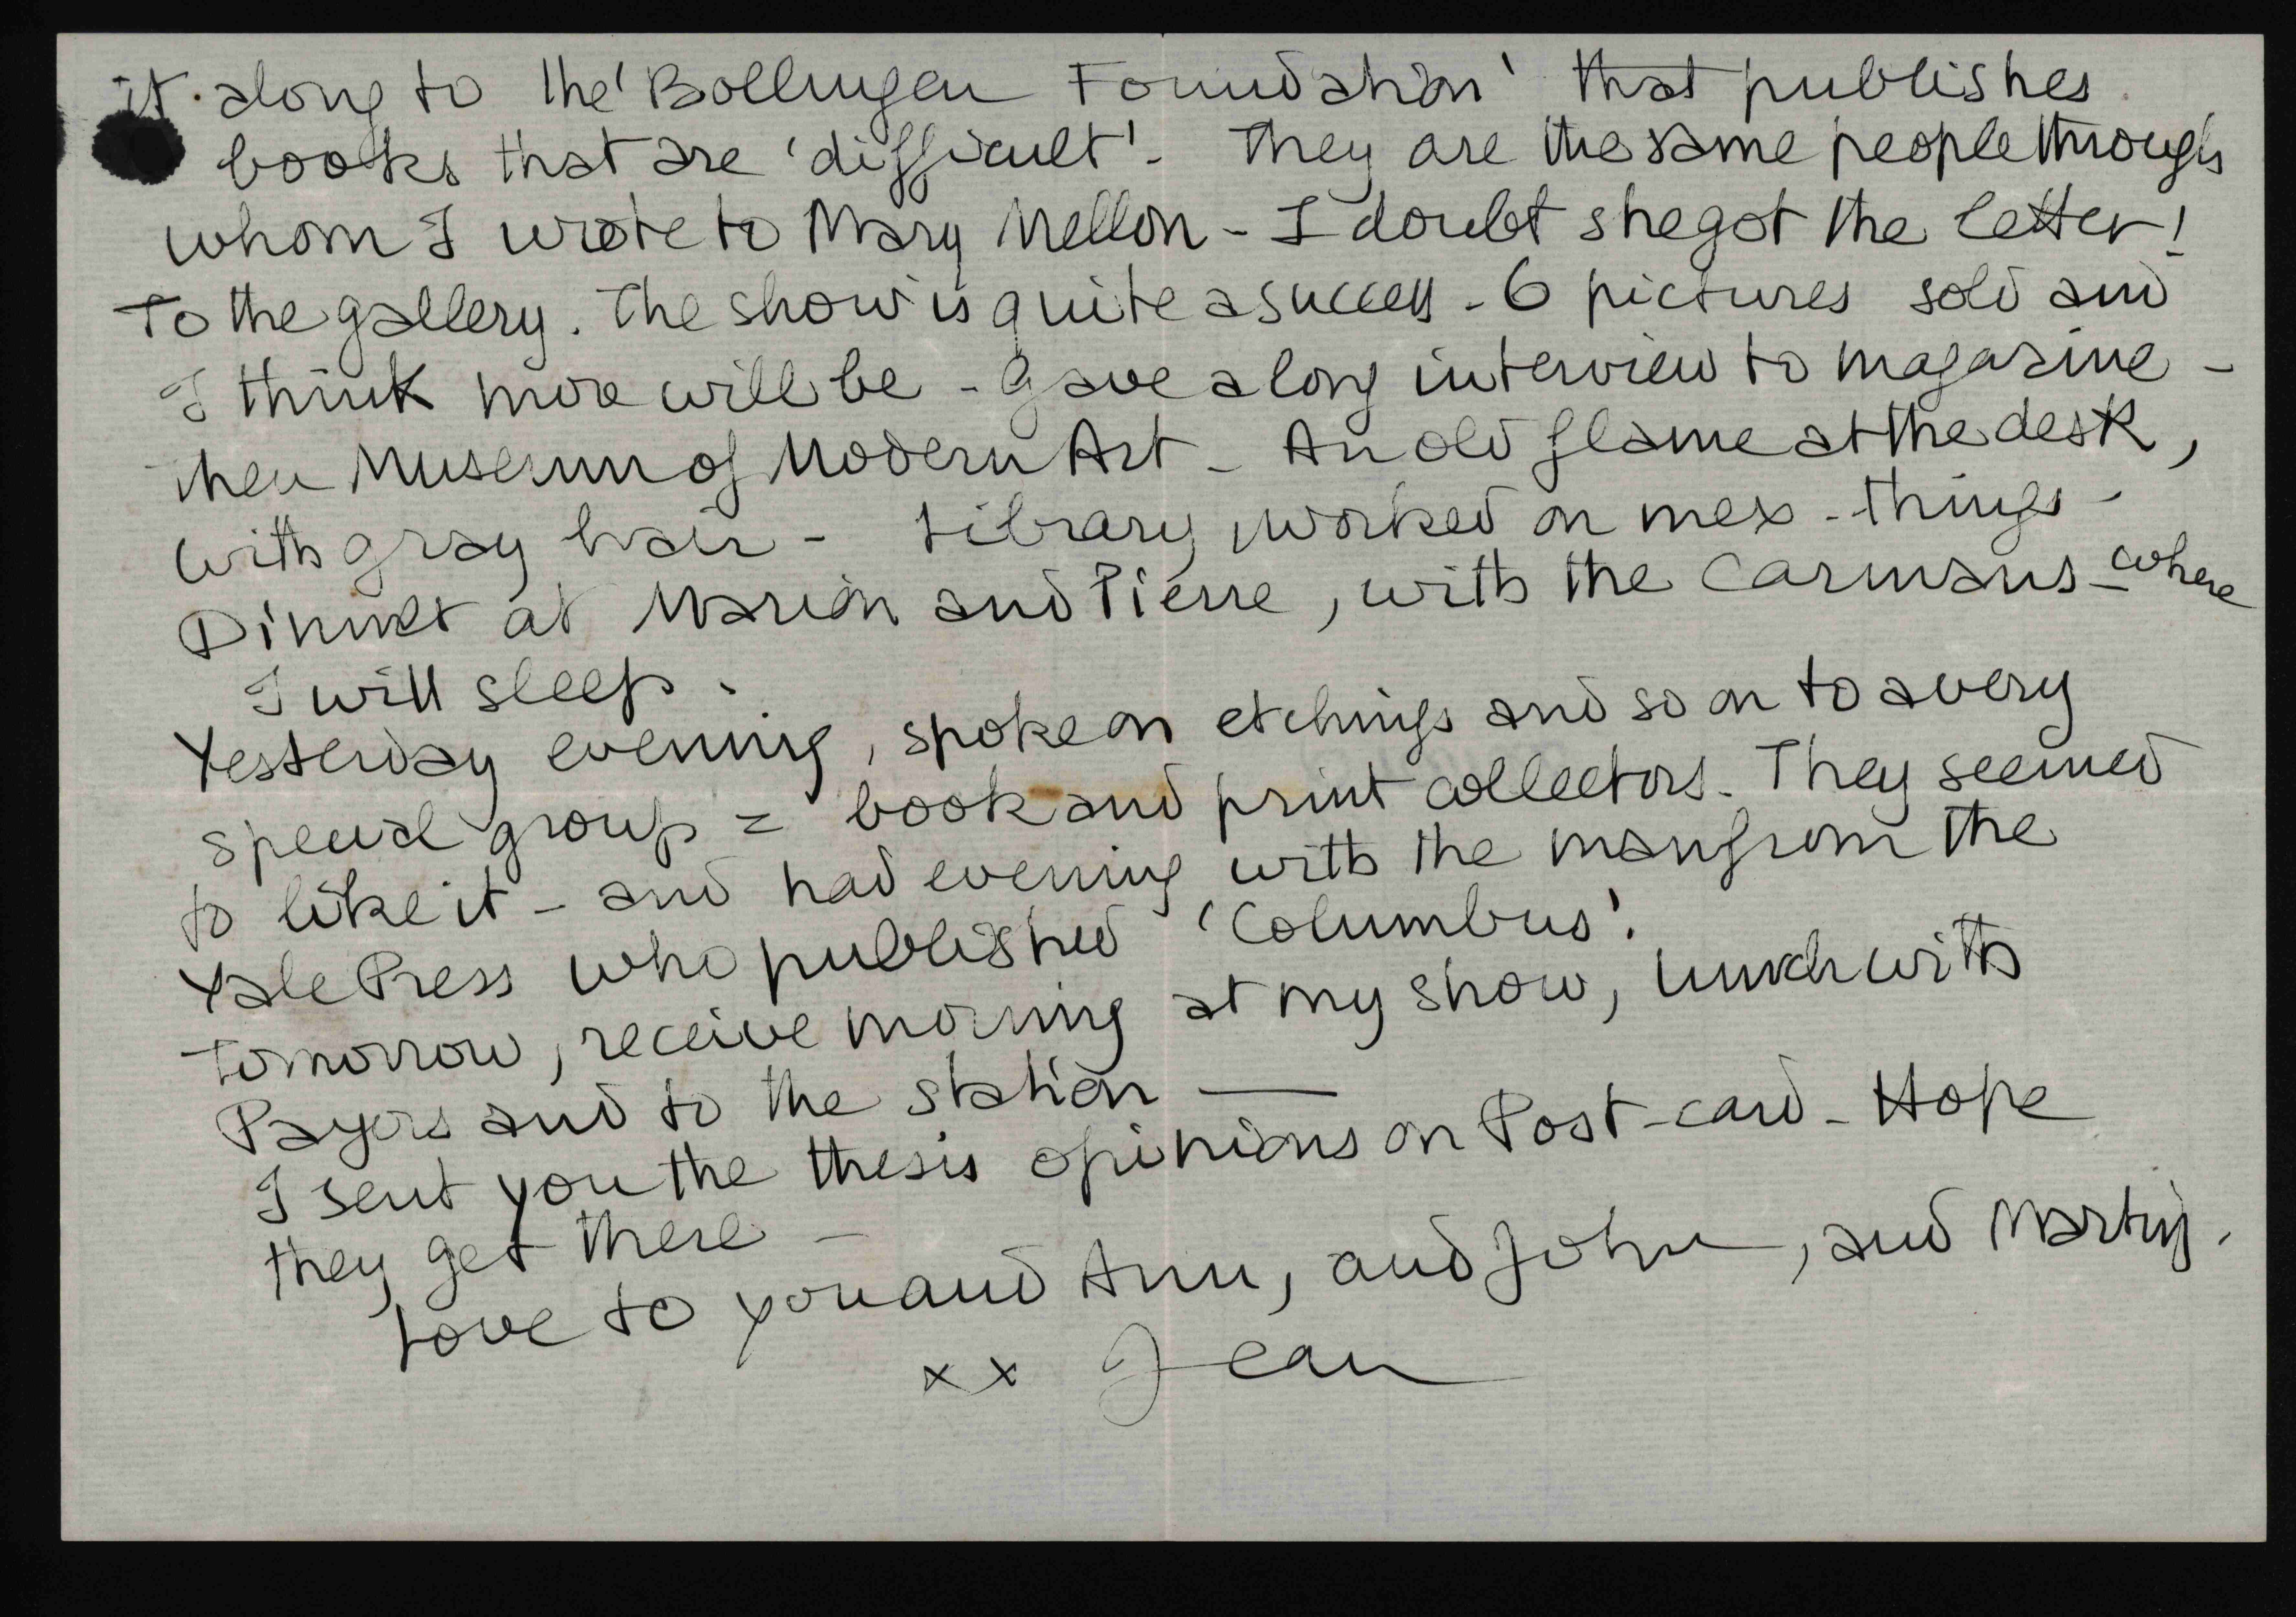 it along to the 'Bollingen Foundation' that publishes
books that are 'difficult'. They are the same people through
whom I wrote to Mary Mellon - I doubt she got the letter!
To the gallery. The show is quite a success - 6 pictures sold and
I think more will be - Gave a long interview to magazine -
then Museum of Modern Art - An old flame at the desk,
with gray hair - Library, worked on mex - things -
Dinner at Marion and Pierre, with the Carmans - where
I will sleep.
Yesterday evening, spoke on etchings and so on to a very
special group = book and print collectors. They seemed
to like it - and had evening with the man from the
Yale Press who published 'Columbus'.
Tomorrow, receive morning at my show, lunch with
and to the station —
I sent you the thesis opinions on Post-card - Hope
they get there -
Love to you and Ann, and John, and Martin.
xx Jean